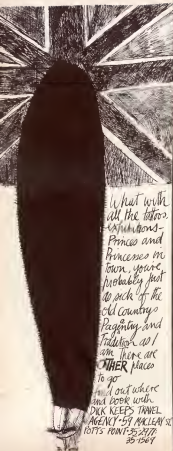 What with
all the tattoos,
exhibitions-
Princes and
Princesses in
town, you're
probably just
as sick of the
old country's
Pagentry and
Tradition as I
am there are
OTHER places
to go
find out where
and book with
DICK KEEPS TRAVEL
AGENCY-59 MACLEAY ST
POTTS POINT-35-2977-
35-1569